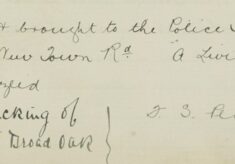 brought to the Police
New Town Rd A Livi
cking of
Broad Oak } J. S. Pea